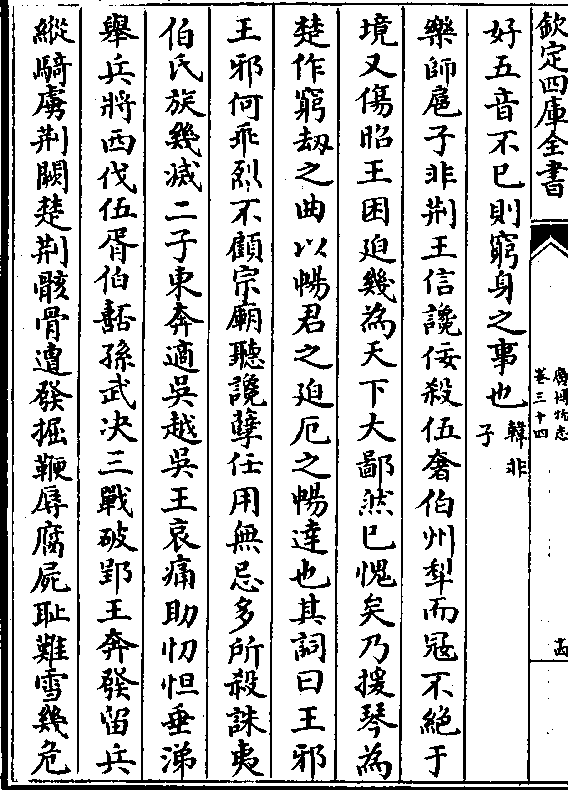 欽定四庫全書
廣博物志
卷三十四
好五音不已則窮身之事也韓非子
樂師扈子非荆王信讒佞殺伍奢伯州犁而冦不絶于
境又傷昭王困迫幾為天下大鄙然已愧矣乃援琴為
楚作窮刼之曲以暢君之迫厄之暢達也其詞曰王邪
王邪何乖烈不顧宗廟聽讒孽任用無忌多所殺誅夷
伯氏族幾滅二子東奔適吳越吳王哀痛助忉怛垂涕
舉兵將西伐伍胥伯嚭孫武决三戰破郢王奔發留兵
縱騎虜荆闕楚荆骸骨遭發掘鞭辱腐屍耻難雪幾危